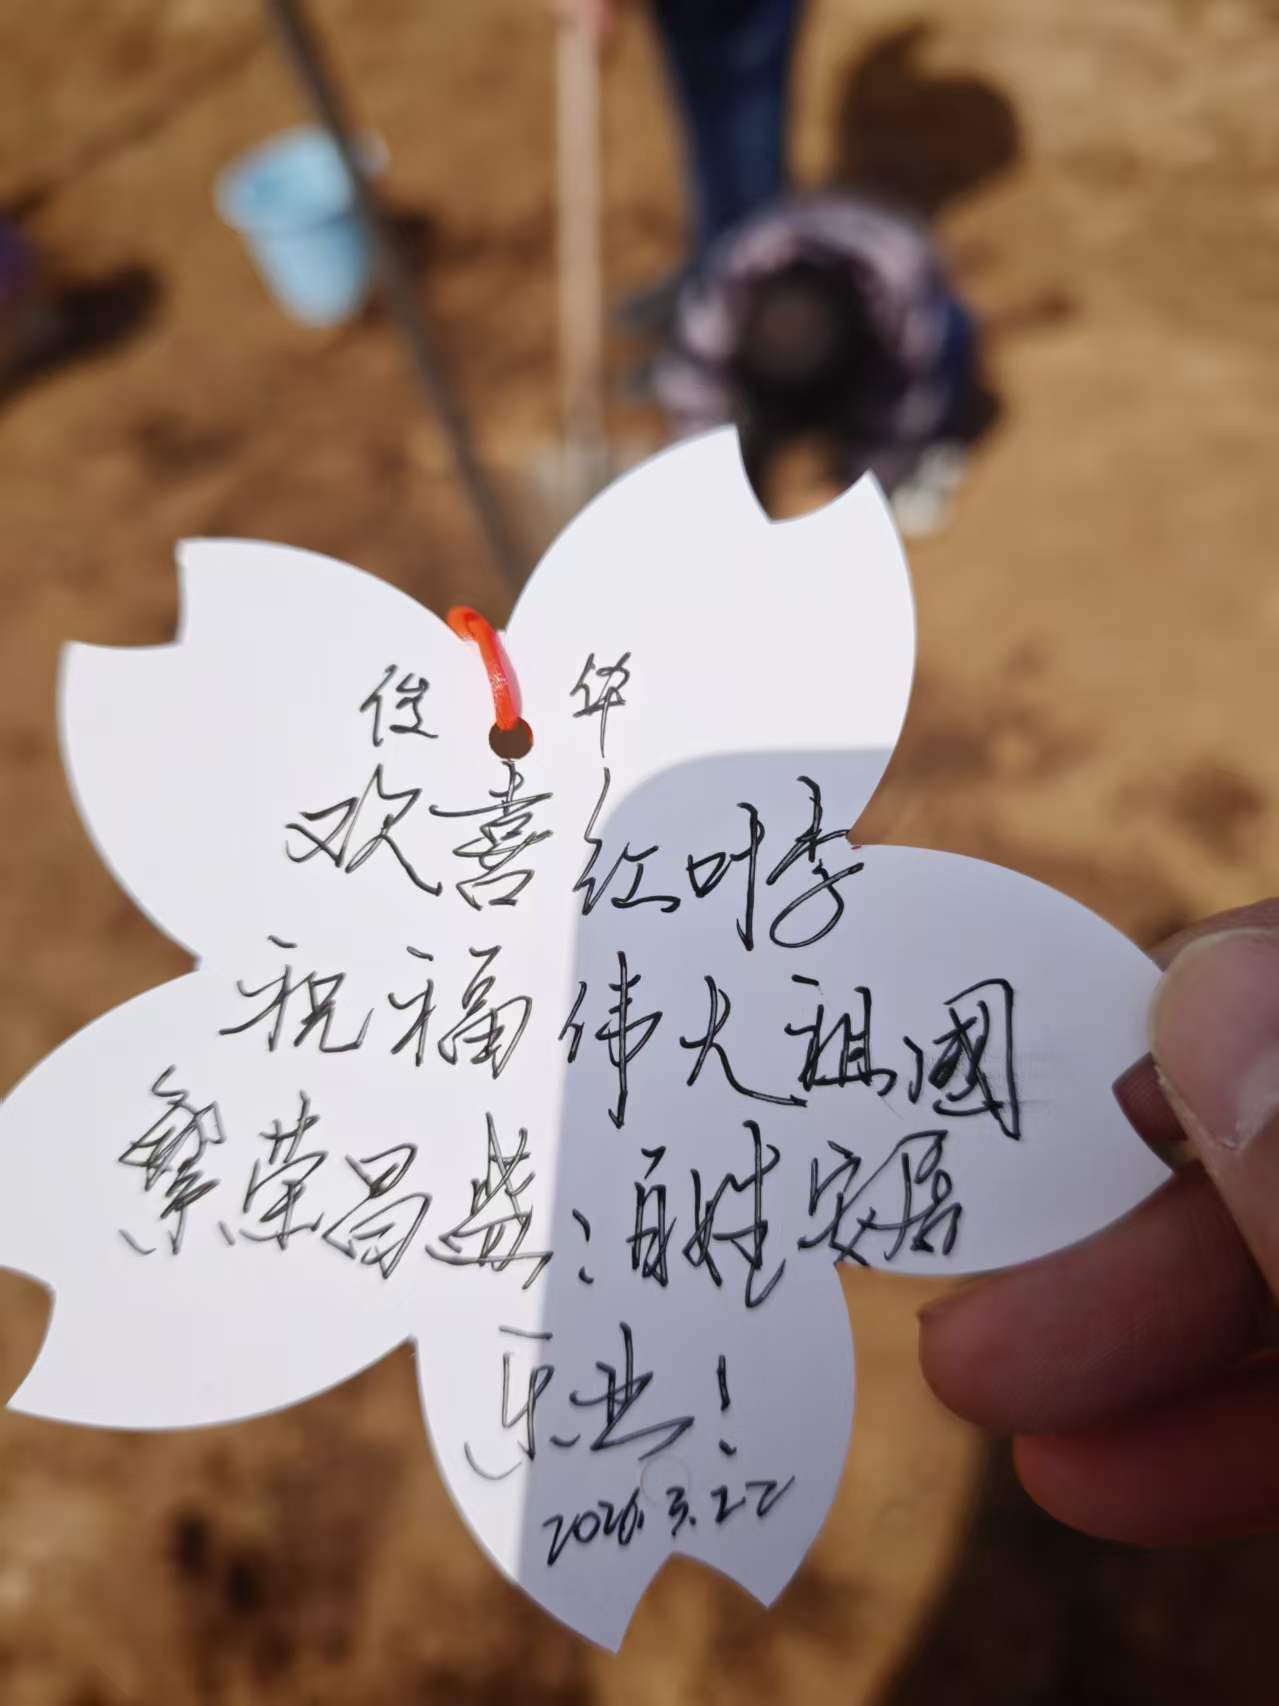 俊 华
欢喜红叶李
祝福伟大祖國
繁荣昌盛；百姓安居
乐业！
2026.3.22